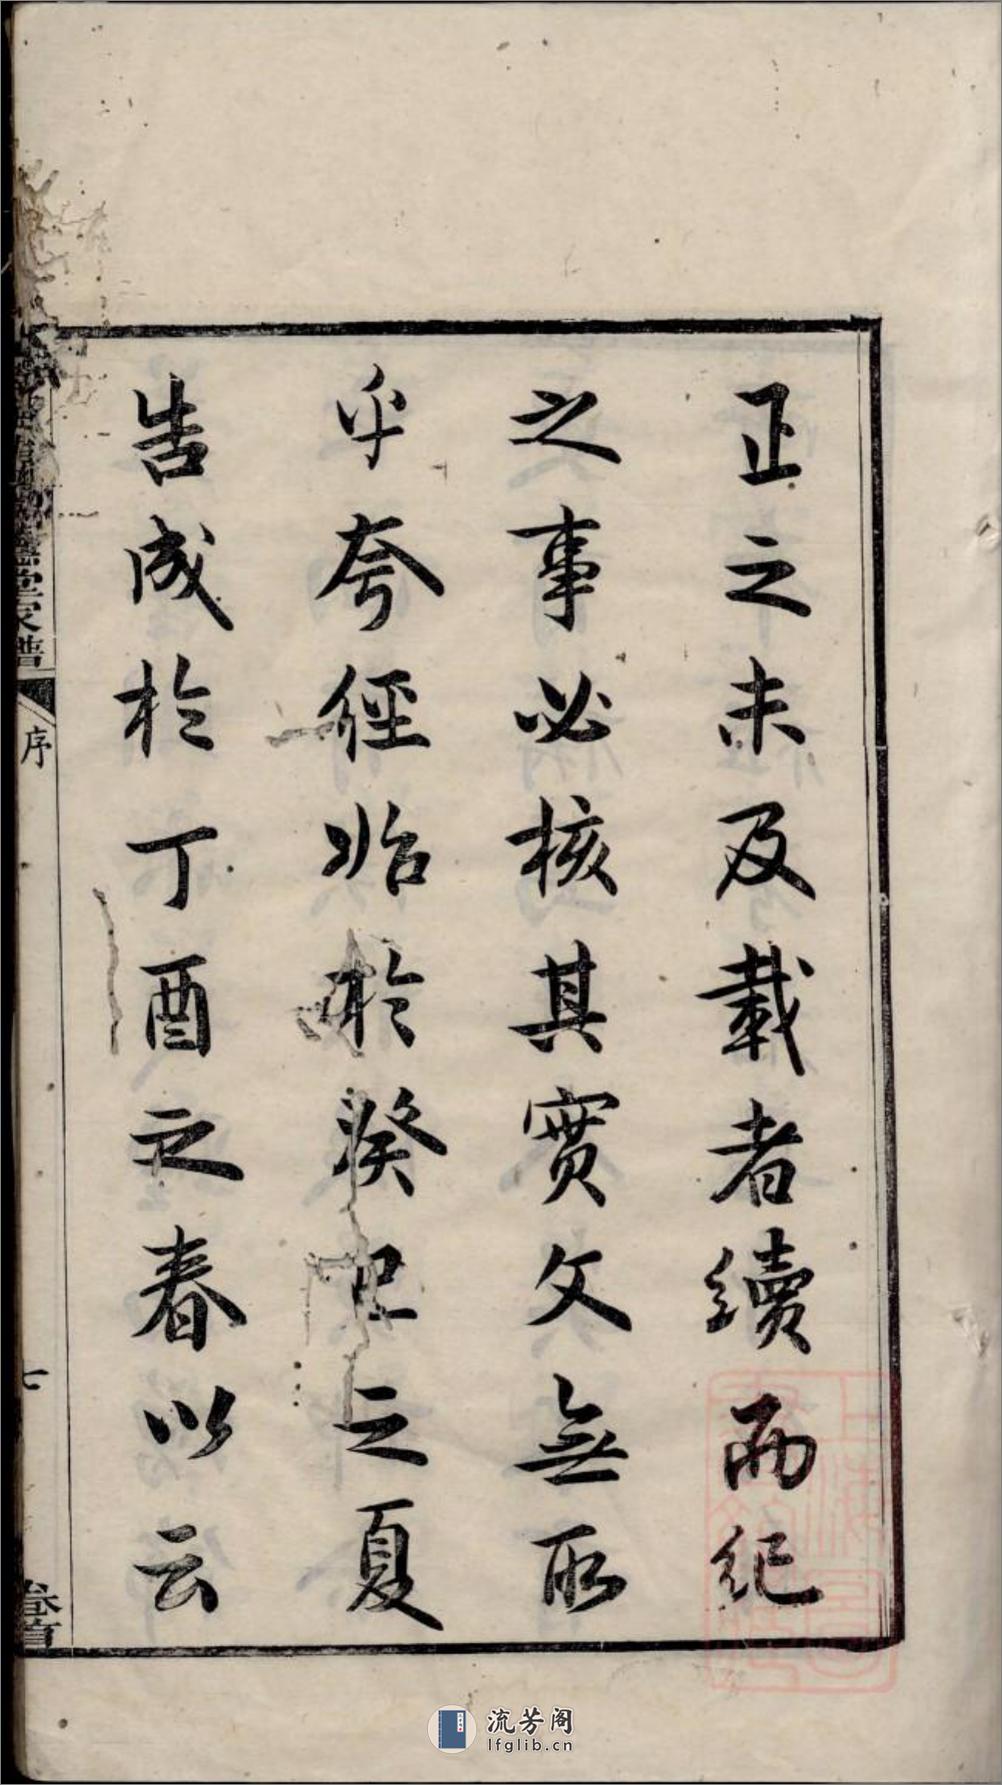 正之未及載者續而紀
之事必核其實文無取
乎夸經始於癸巳之夏
告成於丁酉之春以云
堂家譜
序
七
卷首
流芳阁
lfglib.cn